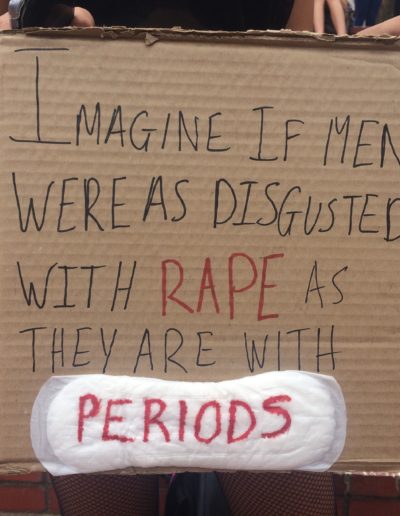 IMAGINE IF MEN
WERE AS DISGUSTED
WITH RAPE AS
THEY ARE WITH
PERIODS